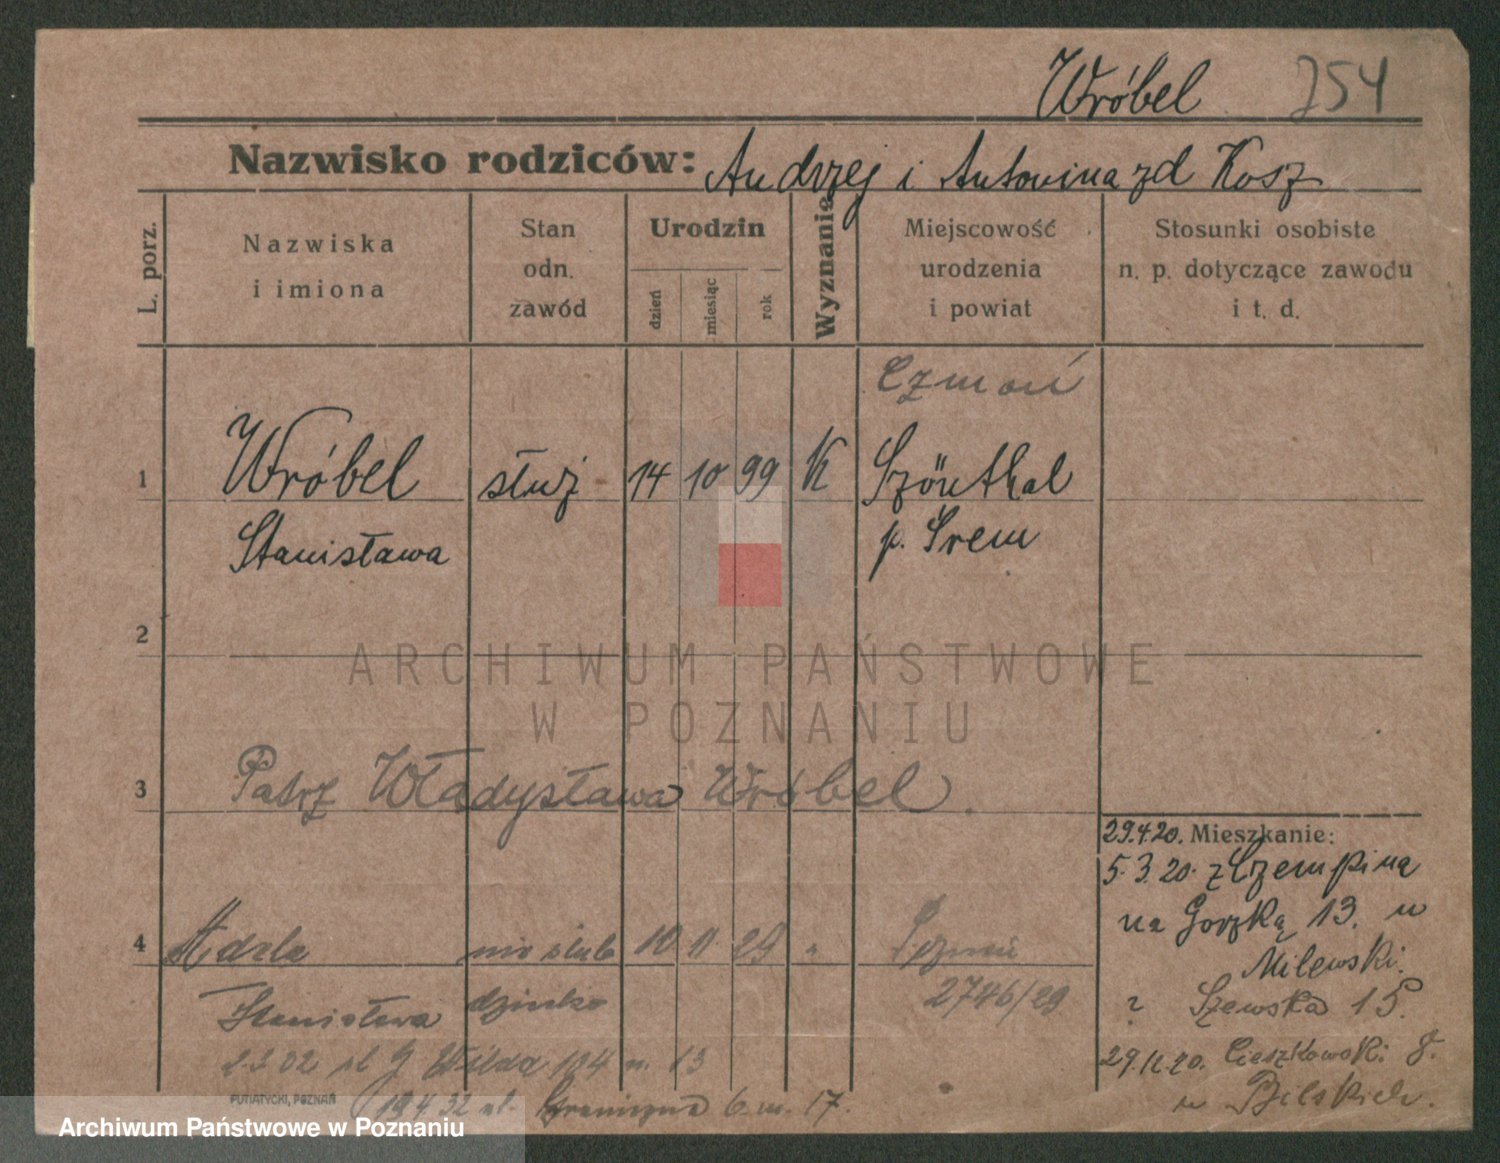 Wróbel 254
Nazwisko rodziców: Andrzej i Antonina zd Kosz
L. porz.
Nazwiska i imiona
Stan odn. zawód
Urodzin
dzień
miesiąc
rok
Wyznanie
Miejscowość urodzenia i powiat
Stosunki osobiste n. p. dotyczące zawodu i t. d.
Czmoń
1 Wróbel służ 14 10 99 K Szönthal
Stanisława p. Śrem
2
ARCHIWUM PAŃSTWOWE
W POZNANIU
3 Patrz Władysława Wróbel.
29.4.20. Mieszkanie:
5.3.20. z Czempina
na Gorzką 13. u
Milewski.
Szewska 15.
29.12.20. Cieszkowski 8.
u
4 Adela nieślub 10 11 29 "
Stanisława dziecko 2746/29
Wilda 104 m. 13
19.4.32 ul. Graniczna 6 m. 17.
PUTIATYCKI, POZNAŃ
Archiwum Państwowe w Poznaniu